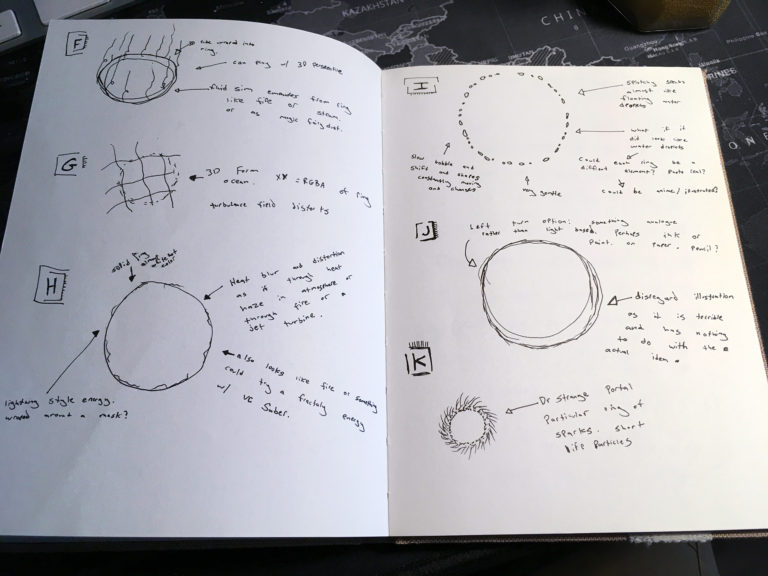 F
ring.
can ring w/ 3D perspective
fluid sim emenates from ring
like fire or steam
or as magic fairydust.
G
3D Form
ocean. XYZ = RGBA of ring
turbulance field distorts
H
solid ring
color
Heat blur and distortion
as if through heat
haze in atmosphere or
through fire or a
jet turbine.
also looks like fire or something
could try a fractaly energy
w/ VC Saber.
lightning style energy.
wrapped around a mask?
I
almost like
floating water
droplets
what if it
did look like
water droplets
Could each ring be a
different element?
Could be anime/illustrated?
slow bobble and
shift and shapes
constantly moving
and changing
very gentle
J
Left turn option: something analogue
rather than light based. Perhaps ink or
paint. on paper. Pencil?
disregard illustration
as it is terrible
and has nothing
to do with the
actual idea.
K
Dr Strange Portal
Particular ring of
sparks. short
life particles
KAZAKHSTAN
CHIN
Guangzhou
Hong Kong
Philippine Sea